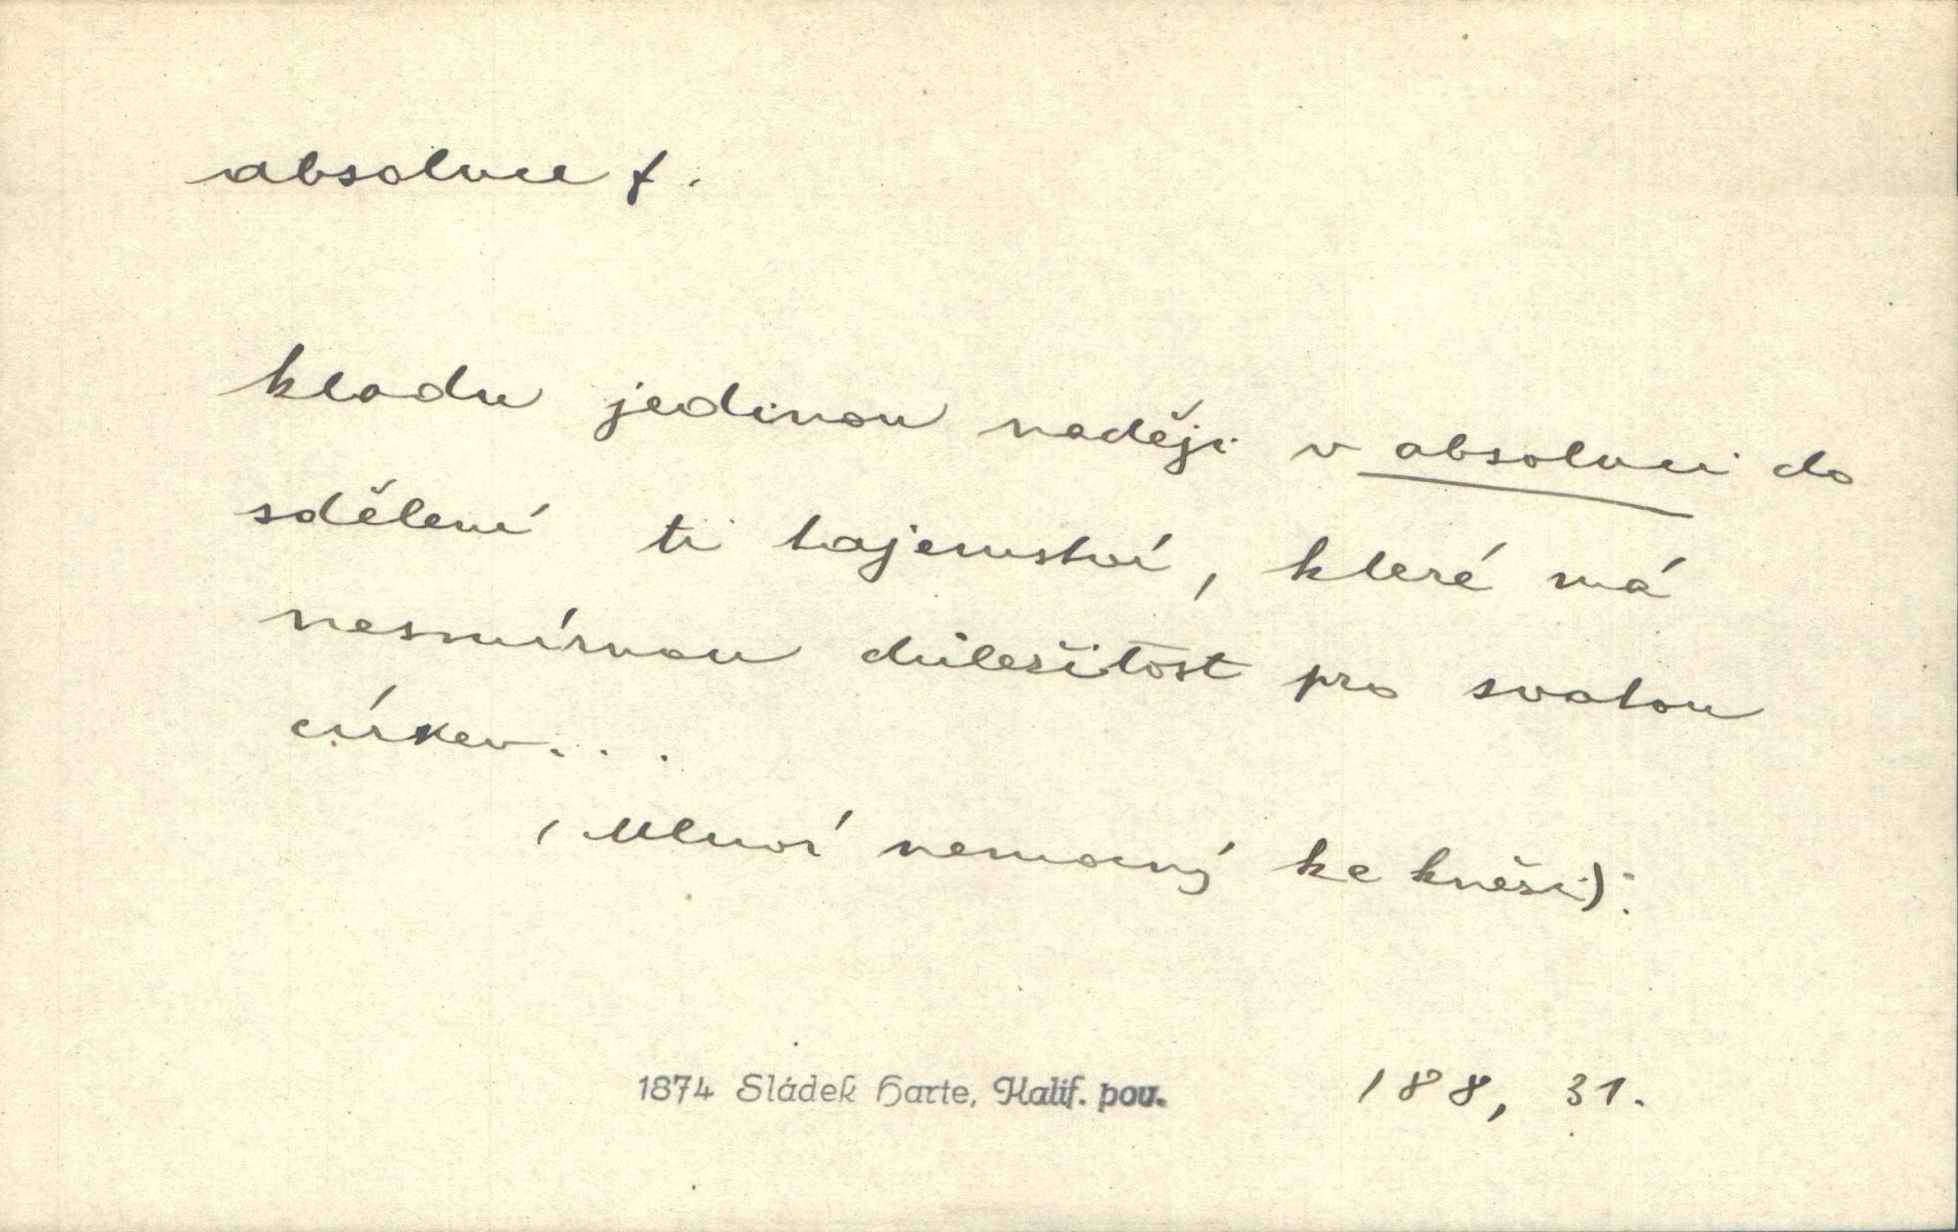 absoluce f.
kladu jedinou naději v absoluci do
sdělení ti tajemství, které má
nesmírnou důležitost pro svatou
církev...
(Mluví nemocný ke knězi):
1874 Sládek Harte, Kalif. pov. 188, 31.